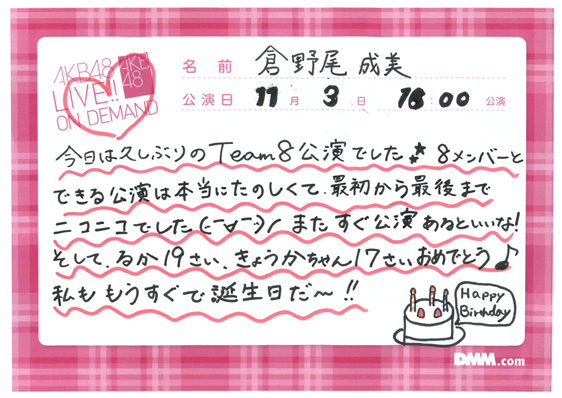 AKB48
LIVE!!
ON DEMAND
AKB
48
名前 倉野尾成美
公演日 11月3日 18:00公演
今日は久しぶりのTeam8公演でした 8メンバーと
できる公演は本当にたのしくて、最初から最後まで
ニコニコでした(ˉ▽ˉ)ノ またすぐ公演あるといいな!
そして、るか19さい、きょうかちゃん17さいおめでとう♪
私ももうすぐで誕生日だ〜!!
Happy
Birthday
DMM.com